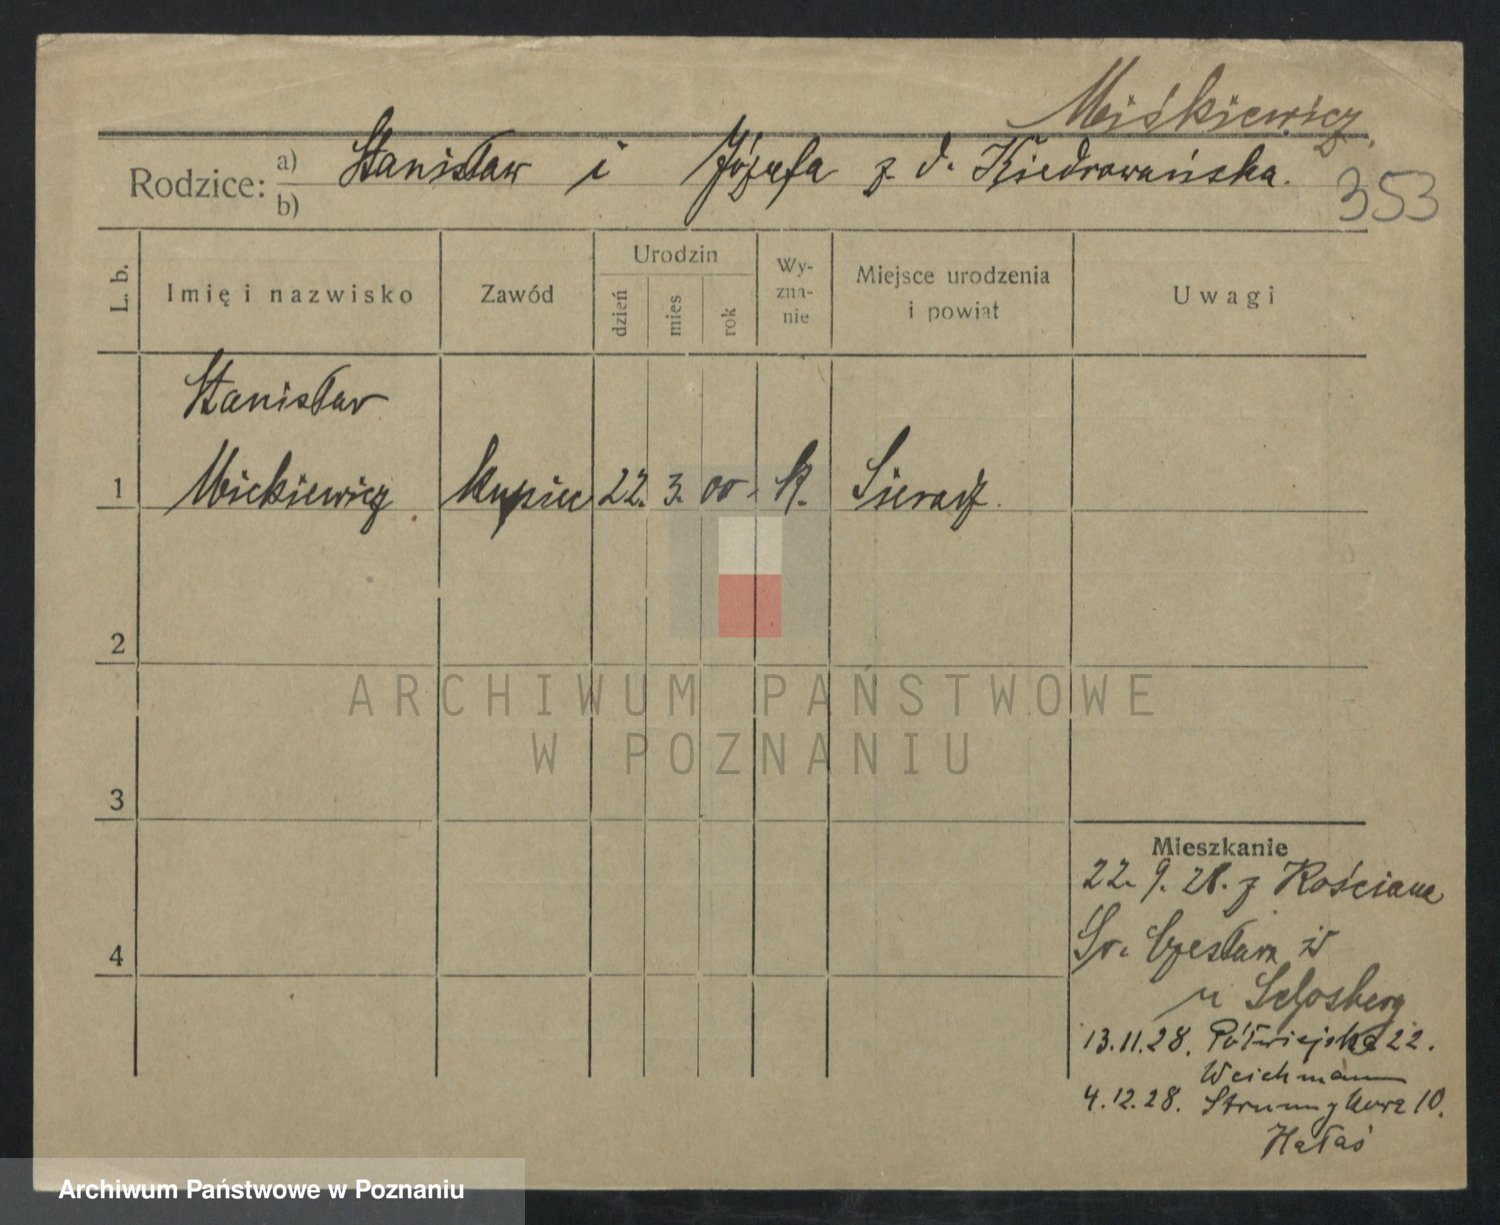 Miśkiewicz.
Rodzice: a) Stanisław i Józefa z d.
b)
353
L. b.
Imię i nazwisko
Zawód
Urodzin
dzień
mies
rok
Wy-
zna-
nie
Miejsce urodzenia
i powiat
Uwagi
Stanisław
1 Mickiewicz kupiec 22. 3. 00. k. Sieradz.
2
3
4
ARCHIWUM PAŃSTWOWE
W POZNANIU
Mieszkanie
22. 9. 28. z Kościana
Św. Czesława
u
13.11.28. Półwiejska 22.
Weichmann
4.12.28. Strumykowa 10.
Hałas
Archiwum Państwowe w Poznaniu